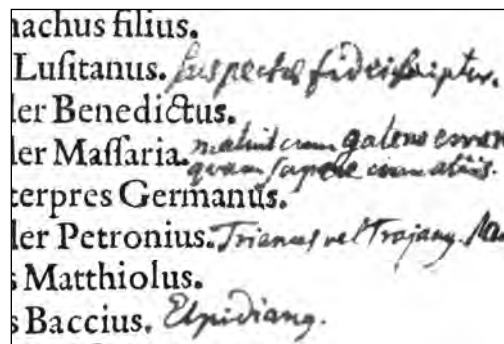 nachus filius.
Luſitanus. Suspectae fidei scriptor.
ler Benedictus.
ler Maſſaria. maluit cum galeno errare
quam sapere cum aliis.
terpres Germanus.
ler Petronius. Trianus vel Trajanus.
s Matthiolus.
s Baccius. Elpidianus.